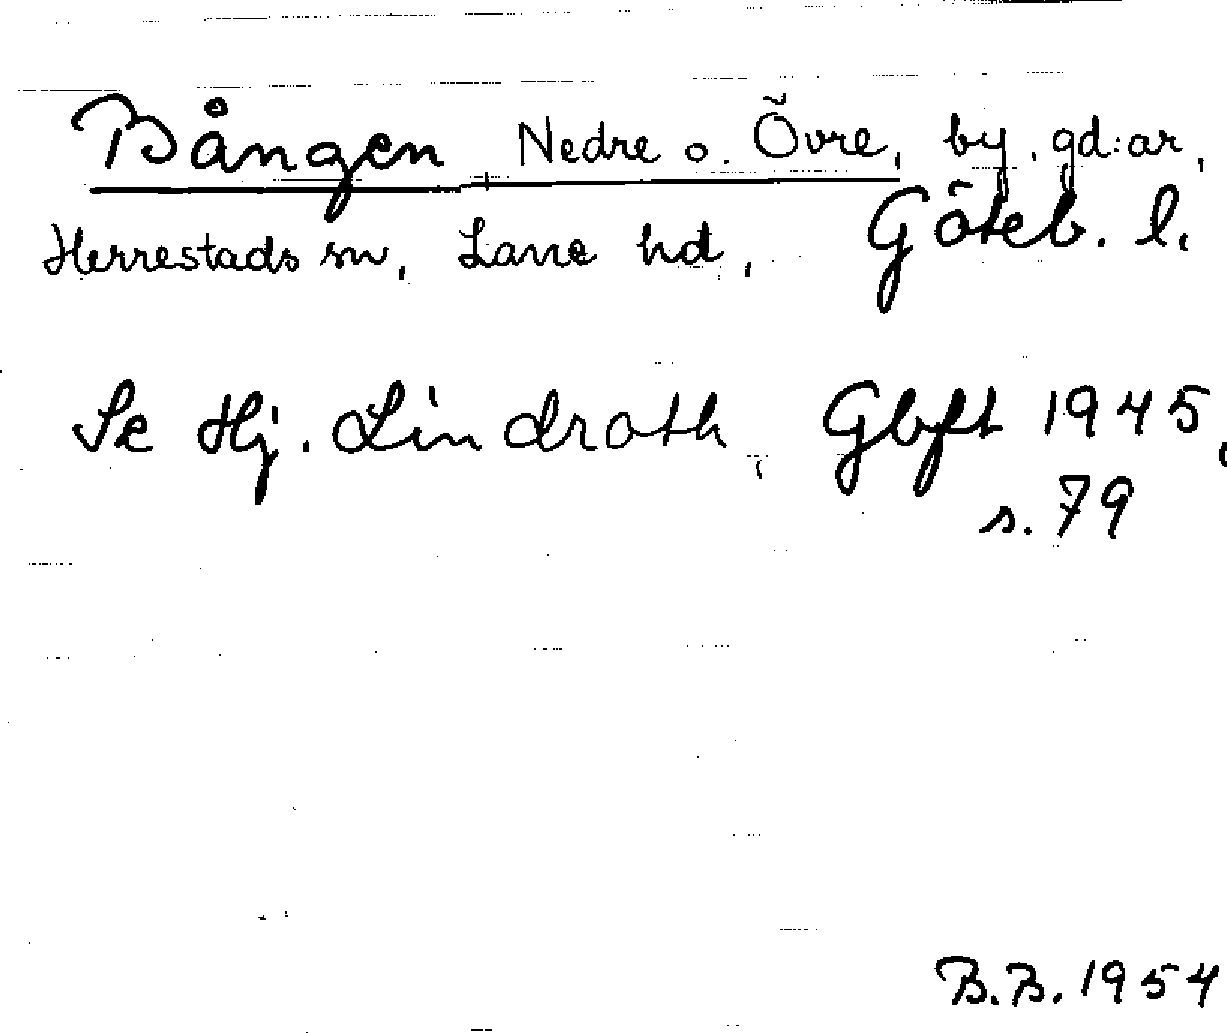 Bången, Nedre o. Övre, by, gd:ar,
Herrestads sn, Lane hd, Göteb. l.
Se Hj. Lindroth, Gbft 1945,
s. 79
B.B. 1954